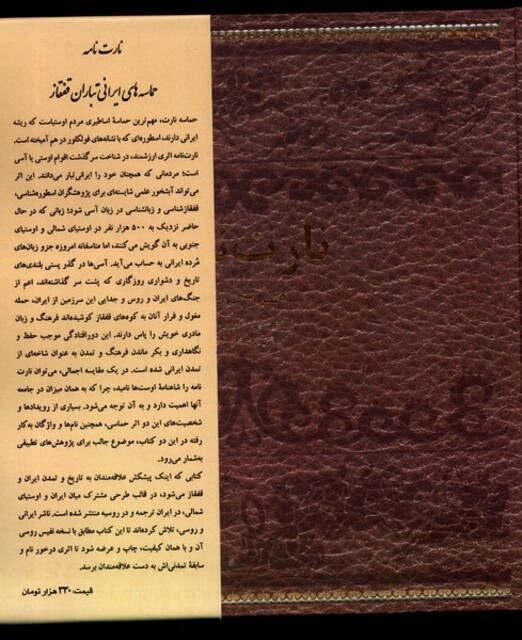 نارت نامه
حماسه های ایرانی تباران قفقاز
حماسه نارت، مهم‌ترین حماسهٔ اساطیری مردم اوستیاست که ریشه
ایرانی دارند، اسطوره‌ای که با نشانه‌های فولکلور در هم آمیخته است.
نارت‌نامه اثری ارزشمند، در شناخت سرگذشت اقوام اوستی یا آسی
است؛ مردمانی که همچنان خود را ایرانی‌تبار می‌دانند. این اثر
می‌تواند آبشخور علمی شایسته‌ای برای پژوهشگران اسطوره‌شناسی،
قفقازشناسی و زبانشناسی در زبان آسی شود؛ زبانی که در حال
حاضر نزدیک به ۵۰۰ هزار نفر در اوستیای شمالی و اوستیای
جنوبی به آن گویش می‌کنند، اما متاسفانه امروزه جزو زبان‌های
مُرده ایرانی به حساب می‌آید. آسی‌ها در گذر پستی بلندی‌های
تاریخ و دشواری روزگاری که پشت سر گذاشته‌اند، اعم از
جنگ‌های ایران و روس و جدایی این سرزمین از ایران، حمله
مغول و فرار آنان به کوه‌های قفقاز کوشیده‌اند فرهنگ و زبان
مادری خویش را پاس دارند. این دورافتادگی موجب حفظ و
نگاهداری و بکر ماندن فرهنگ و تمدن به عنوان شاخه‌ای از
تمدن ایرانی شده است. در یک مقایسه اجمالی، می‌توان نارت
نامه را شاهنامهٔ اوست‌ها نامید، چرا که به همان میزان در جامعه
آنها اهمیت دارد و به آن توجه می‌شود. بسیاری از رویدادها و
شخصیت‌های این دو اثر حماسی، همچنین نام‌ها و واژگان به‌کار
رفته در این دو کتاب، موضوع جالب برای پژوهش‌های تطبیقی
به‌شمار می‌رود.
کتابی که اینک پیشکش علاقه‌مندان به تاریخ و تمدن ایران و
قفقاز می‌شود، در قالب طرحی مشترک میان ایران و اوستیای
شمالی، در ایران ترجمه و در روسیه منتشر شده است. ناشر ایرانی
و روسی، تلاش کرده‌اند تا این کتاب مطابق با نسخه نفیس روسی
آن و با همان کیفیت، چاپ و عرضه شود تا اثری درخور نام و
سابقهٔ تمدنی‌اش به دست علاقه‌مندان برسد.
قیمت: ۳۳۰ هزار تومان
نارت